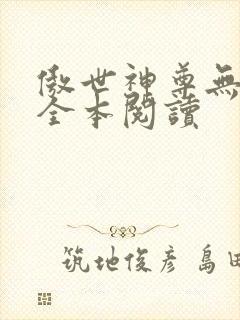 傲世神尊無
全本閱讀
筑地俊彥 島田